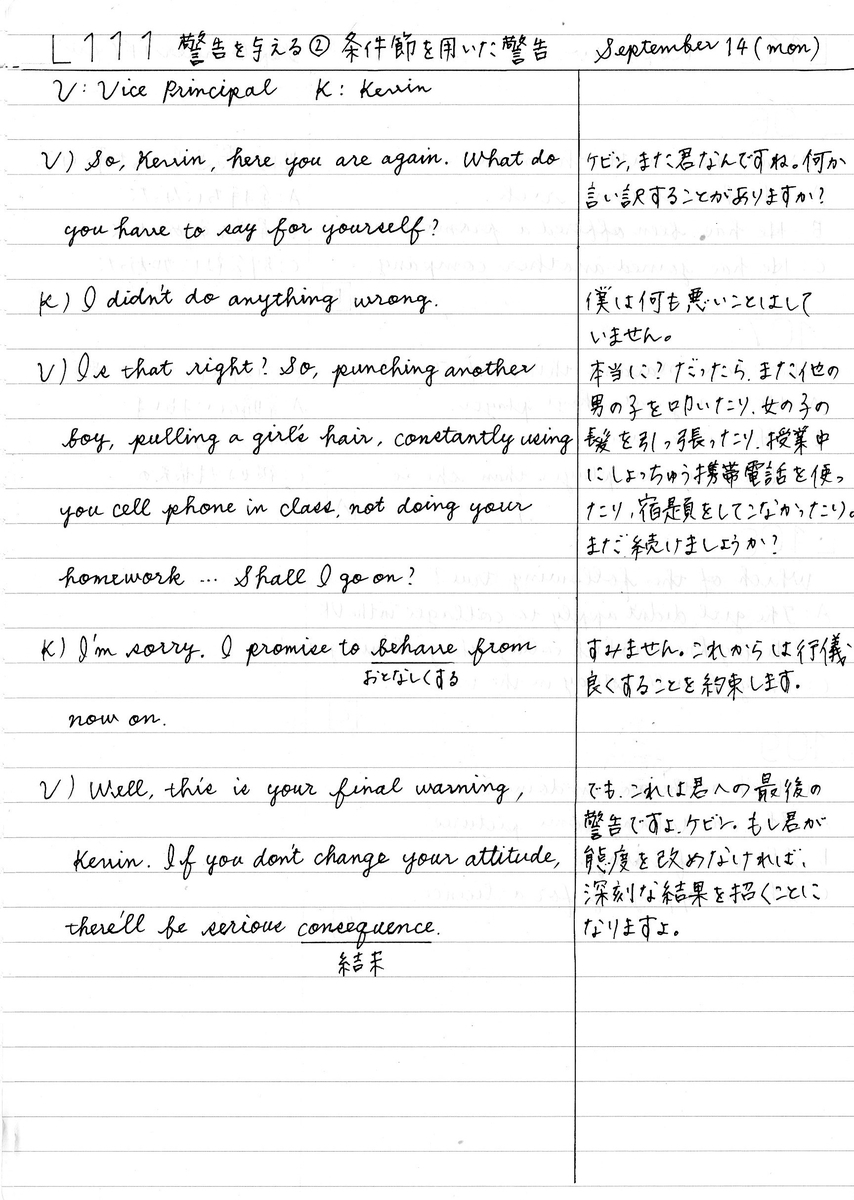 L111 警告を与える② 条件節を用いた警告 September 14 (mon)
V: Vice Principal K: Kevin
V) So, Kevin, here you are again. What do
you have to say for yourself?
K) I didn't do anything wrong.
V) Is that right? So, punching another
boy, pulling a girl's hair, constantly using
you cell phone in class, not doing your
homework … Shall I go on?
K) I'm sorry. I promise to behave from
おとなしくする
now on.
V) Well, this is your final warning,
Kevin. If you don't change your attitude,
there'll be serious consequence.
結末
ケビン, また君なんですね。何か
言い訳することがありますか?
僕は何も悪いことはして
いません。
本当に? だったら、また他の
男の子を叩いたり、女の子の
髪を引っ張ったり、授業中
にしょっちゅう携帯電話を使っ
たり、宿題をしてこなかったり。
まだ続けましょうか?
すみません。これからは行儀
良くすることを約束します。
でも、これは君への最後の
警告ですよ、ケビン。もし君が
態度を改めなければ、
深刻な結果を招くことに
なりますよ。